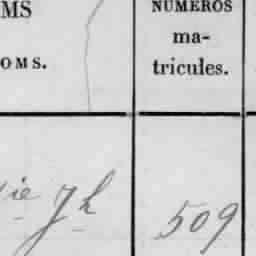 MS
OMS.
NUMEROS
ma-
tricules.
ie Jh
509